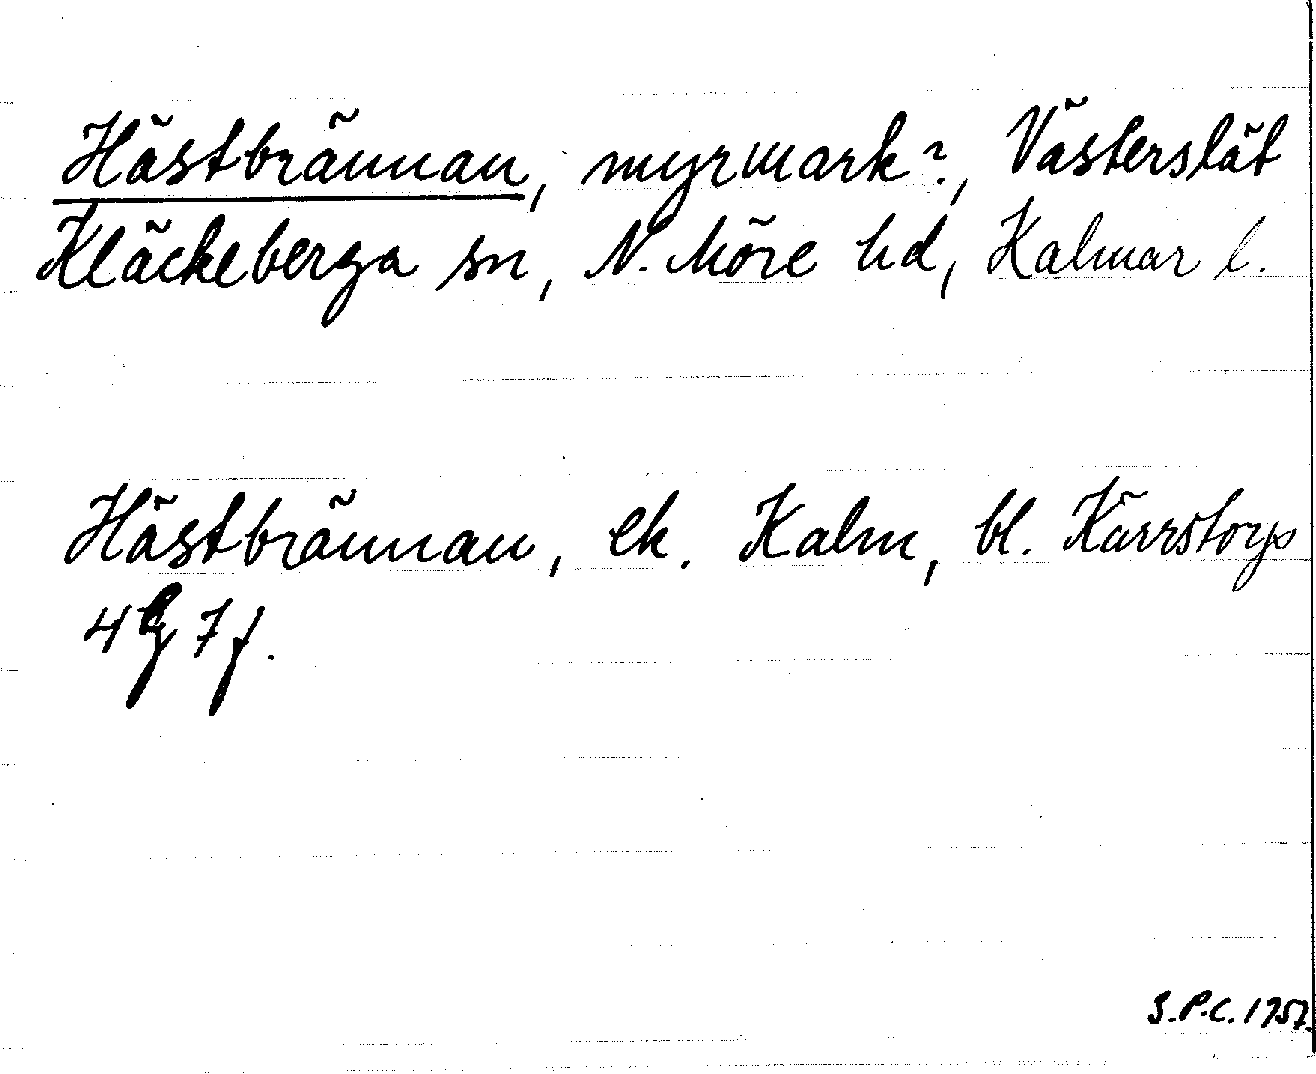 Hästbrännan, myrmark?, Västerslät
Kläckeberga sn, N. Möre hd, Kalmar l.
Hästbrännan, ek. Kalm, bl. Kärrstorp
4 g 7 f.
S.P.C. 1957